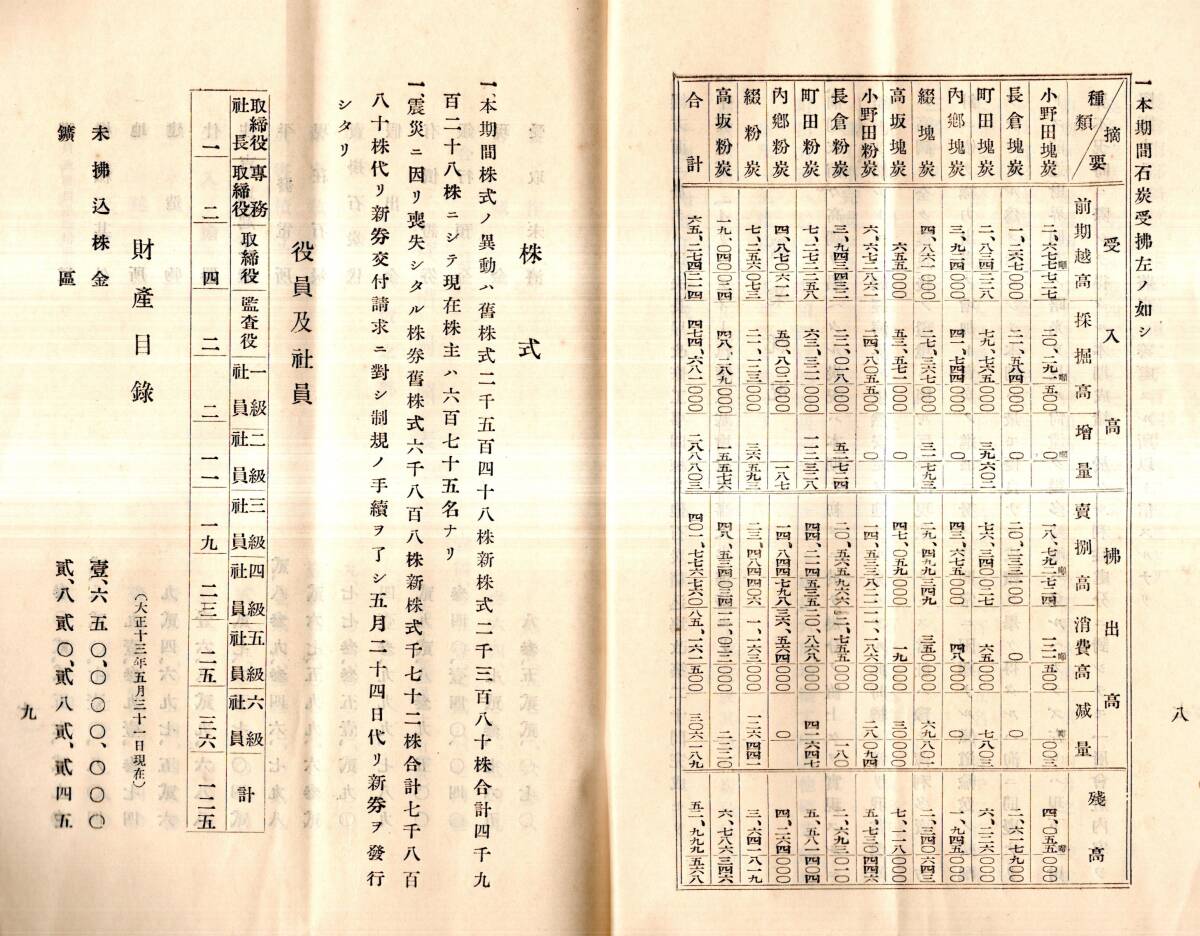 一本期間石炭受拂左ノ如シ
種類 摘要 受入高 拂出高 殘高
前期越高 採掘高 增量 賣捌高 消費高 減量
小野田塊炭 二、六七七七二六 二〇、二九一五〇〇 〇 一八、七九二七二三 一二一五〇〇 〇〇三 四、〇五五〇〇〇
長倉塊炭 一、二六七〇〇〇 二一、五八四〇〇〇 〇 二〇、二三三一〇〇 〇 〇 二、六一七九〇〇
町田塊炭 二、八三四二二八 七九、七六五〇〇〇 三九六〇二 七六、三四〇〇二七 六五〇〇〇 七八〇三 六、二二六〇〇〇
內鄕塊炭 三、九二四〇〇〇 四一、七四四〇〇〇 〇 四三、六七五〇〇〇 四八〇〇〇 〇 一、九四五〇〇〇
綴塊炭 四、八六一〇〇〇 二七、三六七〇〇〇 三一七九三 二九、四九九三四九 三五〇〇〇〇 六九八〇一 二、三四〇六四三
高坂塊炭 六五五〇〇〇 五三、五七一〇〇〇 〇 四七、〇五九〇〇〇 一九〇〇〇 三〇〇〇〇 七、一一八〇〇〇
小野田粉炭 六、六七二八六二 二四、八〇五五〇〇 〇 一四、五三三八二二 一一、一八六〇〇〇 二八〇九四 五、七三〇四四六
長倉粉炭 三、九四三四三二 二二、〇一八〇〇〇 五二七二四 二〇、五六五九六六 二、七五五〇〇〇 一八〇 二、六九三〇一〇
町田粉炭 七、二七二二五八 六三、三二一〇〇〇 一一二三二八 四四、二一四五三五 二〇、八六八〇〇〇 四一六四七 五、五八一四〇四
內鄕粉炭 四、八七〇六一一 五〇、八〇二〇〇〇 一八七 一四、八四四七九八 三六、五六四〇〇〇 〇 四、二六四〇〇〇
綴粉炭 七、二五六〇七三 二一、一二三〇〇〇 三六五九三 二三、四八四四〇六 一、一六三〇〇〇 一二六四四一 三、六四一八一九
高坂粉炭 一九、〇四〇〇二四 四八、二八九〇〇〇 一五五七六 四八、五三四〇三四 一二、〇二二〇〇〇 二二二〇 六、七八六三四六
合計 六五、二七四二一四 四七四、六八一〇〇〇 二八八八〇三 四〇一、七七六七六〇 八五、一六一五〇〇 三〇六一八九 五二、九九九五六八
八
株式
一、本期間株式ノ異動ハ舊株式二千五百四十八株新株式二千三百八十株合計四千九
百二十八株ニシテ現在株主ハ六百七十五名ナリ
一、震災ニ因リ喪失シタル株券舊株式六千八百八株新株式千七十二株合計七千八百
八十株代リ新券交付請求ニ對シ制規ノ手續ヲ了シ五月二十四日代リ新券ヲ發行
シタリ
役員及社員
取締役社長 專務取締役 取締役 監査役 一級社員 二級社員 三級社員 四級社員 五級社員 六級社員 計
一 二 四 二 二 一一 一九 二三 二五 三六 一二五
財產目錄
(大正十三年五月三十一日現在)
未拂込株金 壹、六五〇、〇〇〇、〇〇〇
鑛區 貳、八貳〇、貳八貳、貳四五
九